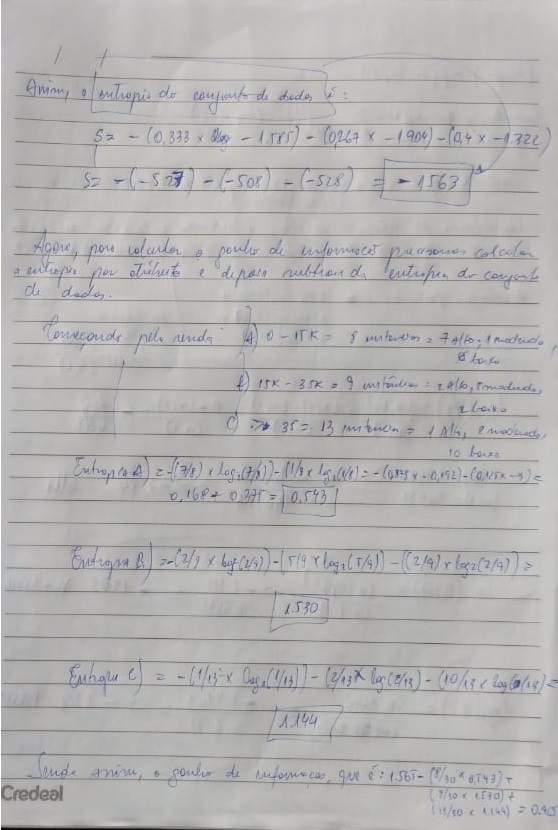 Assim, a entropia do conjunto de dados é:
S= -(0,333 x - 1.585) - (0,267 x - 1.904) - (0,4 x - 1.322)
S= -(-527) - (-508) - (-528) = - 1563
Agora, para calcular o ganho de informação precisamos calcular
a entropia por atributo e depois subtrair da entropia do conjunto
de dados.
Começando pela renda: A) 0 - 15K = 8 instâncias = 7 Alto, 1 moderado,
0 baixo
B) 15K - 35K = 9 instâncias = 2 Alto, 5 moderado,
2 baixo
C) > 35 = 13 instâncias = 1 Alto, 2 moderado,
10 baixo
Entropia A) = -(7/8) x log2(7/8) - (1/8 x log2(1/8) = -(0,875 x - 0,192) - (0,125 x - 3) =
0,168 + 0,375 = 0,543
Entropia B) = -(2/9 x log2(2/9) - (5/9 x log2(5/9)) - ((2/9) x log2(2/9)) =
1.530
Entropia C) = -(1/13 x log2(1/13)) - (2/13 x log(2/13) - (10/13 x log(10/13) =
1.144
Sendo assim, o ganho de informação, que é: 1.565 - (8/30 x 0,543) +
(9/30 x 1.530) +
(13/30 x 1.144) = 0.465
Credeal